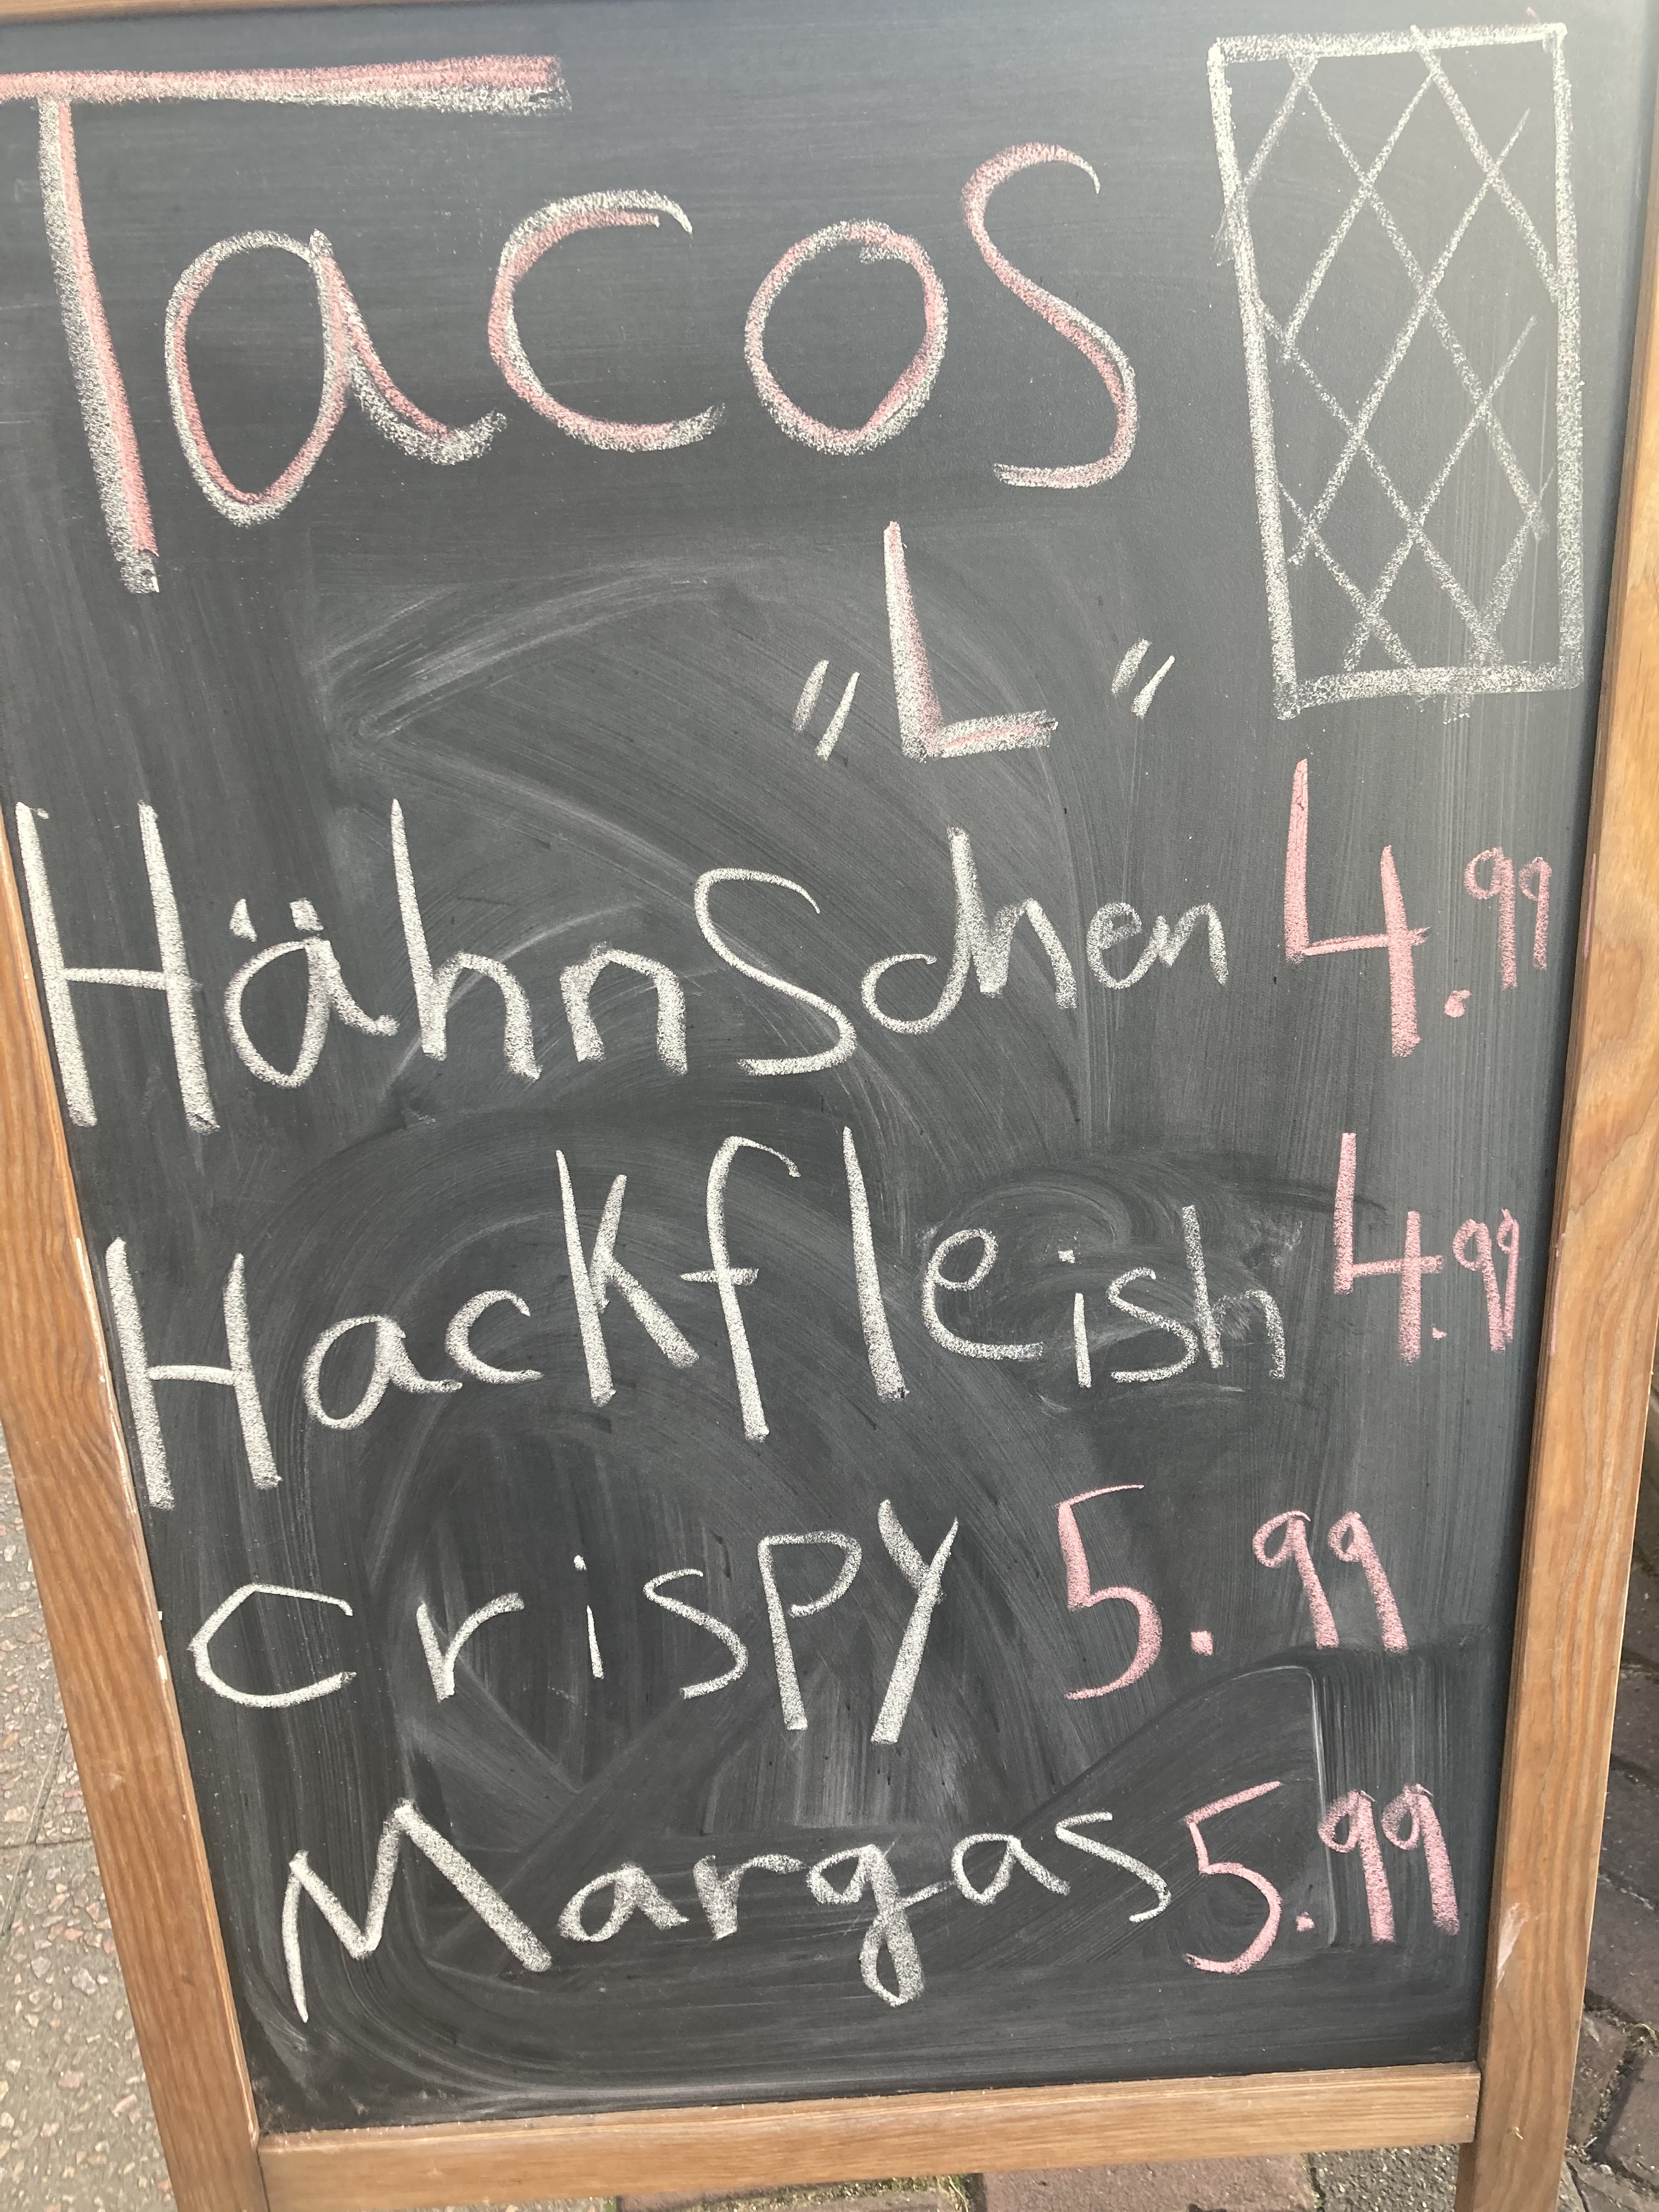 Tacos
"L"
Hähnschen 4.99
Hackfleish 4.99
Crispy 5.99
Margas 5.99